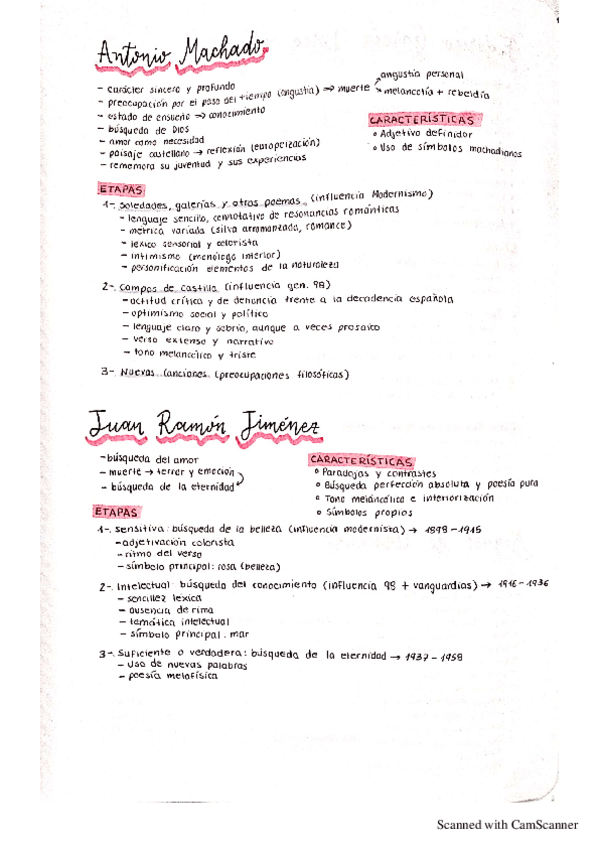 1
Antonio Machado
- carácter sincero y profundo
- preocupación por el paso del tiempo (angustia) → muerte
angustia personal
melancolía + rebeldía
- estado de ensueño → conocimiento
- búsqueda de Dios
- amor como necesidad
- paisaje castellano → reflexión (europeización)
- rememora su juventud y sus experiencias
CARACTERÍSTICAS
• Adjetivo definidor
• Uso de símbolos machadianos
ETAPAS
1-. Soledades, galerías y otros poemas. (influencia Modernismo)
- lenguaje sencillo, connotativo de resonancias románticas
- métrica variada (silva arromanzada, romance)
- léxico sensorial y colorista
- intimismo (monólogo interior)
- personificación elementos de la naturaleza
2-. Campos de Castilla (influencia gen. 98)
- actitud crítica y de denuncia frente a la decadencia española
- optimismo social y político
- lenguaje claro y sobrio, aunque a veces prosaico
- verso extenso y narrativo
- tono melancólico y triste
3-. Nuevas Canciones (preocupaciones filosóficas)
Juan Ramón Jiménez
- búsqueda del amor
- muerte → terror y emoción
- búsqueda de la eternidad
CARACTERÍSTICAS
• Paradojas y contrastes
• Búsqueda perfección absoluta y poesía pura
• Tono melancólico e interiorización
• Símbolos propios
ETAPAS
1-. Sensitiva: búsqueda de la belleza (influencia modernista) → 1898 - 1915
- adjetivación colorista
- ritmo del verso
- símbolo principal: rosa (belleza)
2-. Intelectual: búsqueda del conocimiento (influencia 98 + vanguardias) → 1916 - 1936
- sencillez léxica
- ausencia de rima
- temática intelectual
- símbolo principal: mar
3-. Suficiente o verdadera: búsqueda de la eternidad → 1937 - 1958
- uso de nuevas palabras
- poesía metafísica
Scanned with CamScanner